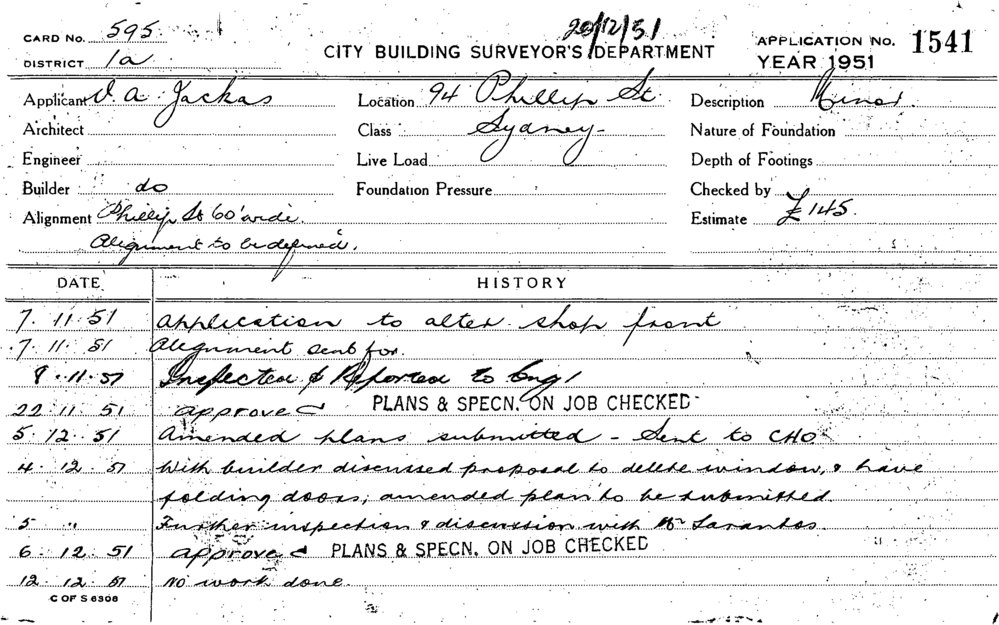 CARD No. 595
DISTRICT 1a
20/12/51
CITY BUILDING SURVEYOR'S DEPARTMENT
APPLICATION No. 1541
YEAR 1951
Applicant V A Jackas
Location 94 Phillip St
Description Minor.
Architect
Class Sydney
Nature of Foundation
Engineer
Live Load
Depth of Footings
Builder do
Foundation Pressure
Checked by
Alignment Phillip St 60' wide.
Estimate £145.
Alignment to be defined.
DATE HISTORY
7. 11. 51 Application to alter shop front
7. 11. 51 Alignment sent for.
8. 11. 51 Inspected & Reported to Eng
22 11. 51 approved PLANS & SPECN. ON JOB CHECKED
5. 12. 51 Amended plans submitted - Sent to CHO
4. 12. 51 With builder discussed proposal to delete window, & have
folding doors; amended plan to be submitted
5 " Further inspection & discussion with Mr Sarantos.
6. 12. 51 approved PLANS & SPECN. ON JOB CHECKED
12. 12. 51 No work done.
C OF S 6306